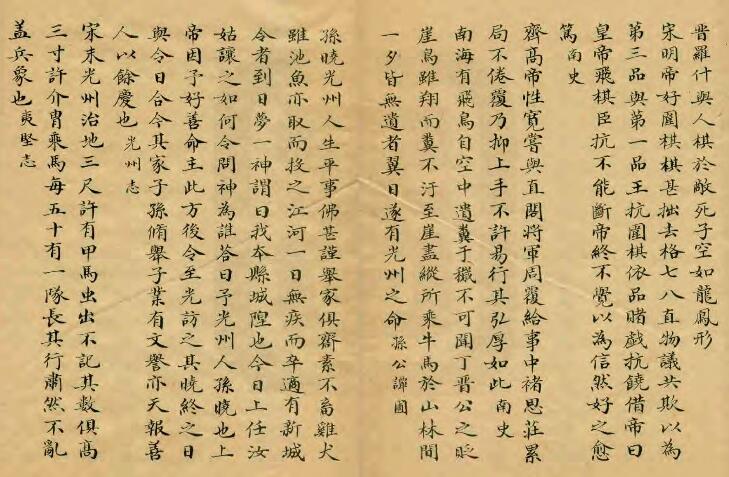 晉羅什與人棋於敵死子空如龍鳳形
宋明帝好圍棋棋甚拙去格七八直物議共欺以為
第三品與第一品王抗圍棋依品賭戲抗饒借帝曰
皇帝飛棋臣抗不能斷帝終不覺以為信然好之愈
篤南史
齊高帝性寬嘗與直閣將軍周覆給事中褚思莊累
局不倦覆乃抑上手不許易行其弘厚如此南史
南海有飛鳥自空中遺糞于穢不可聞丁晉公之貶
崖鳥雖翔而糞不汙至崖盡縱所乘牛馬於山林間
一夕皆無遺者翼日遂有光州之命孫公談圃
孫曉光州人生平事佛甚謹舉家俱齋素不畜雞犬
雖池魚亦取而投之江河一日無疾而卒適有新城
令者到日夢一神謂曰我本縣城隍也今日上任汝
姑讓之如何令問神為誰答曰予光州人孫曉也上
帝因予好善命主此方後令至光訪之其曉終之日
與令日合今其家子孫脩舉子業有文譽亦天報善
人以餘慶也光州志
宋末光州治地三尺許有甲馬虫出不記其數俱高
三寸許介冑乘馬每五十有一隊長其行肅然不亂
盖兵象也夷堅志